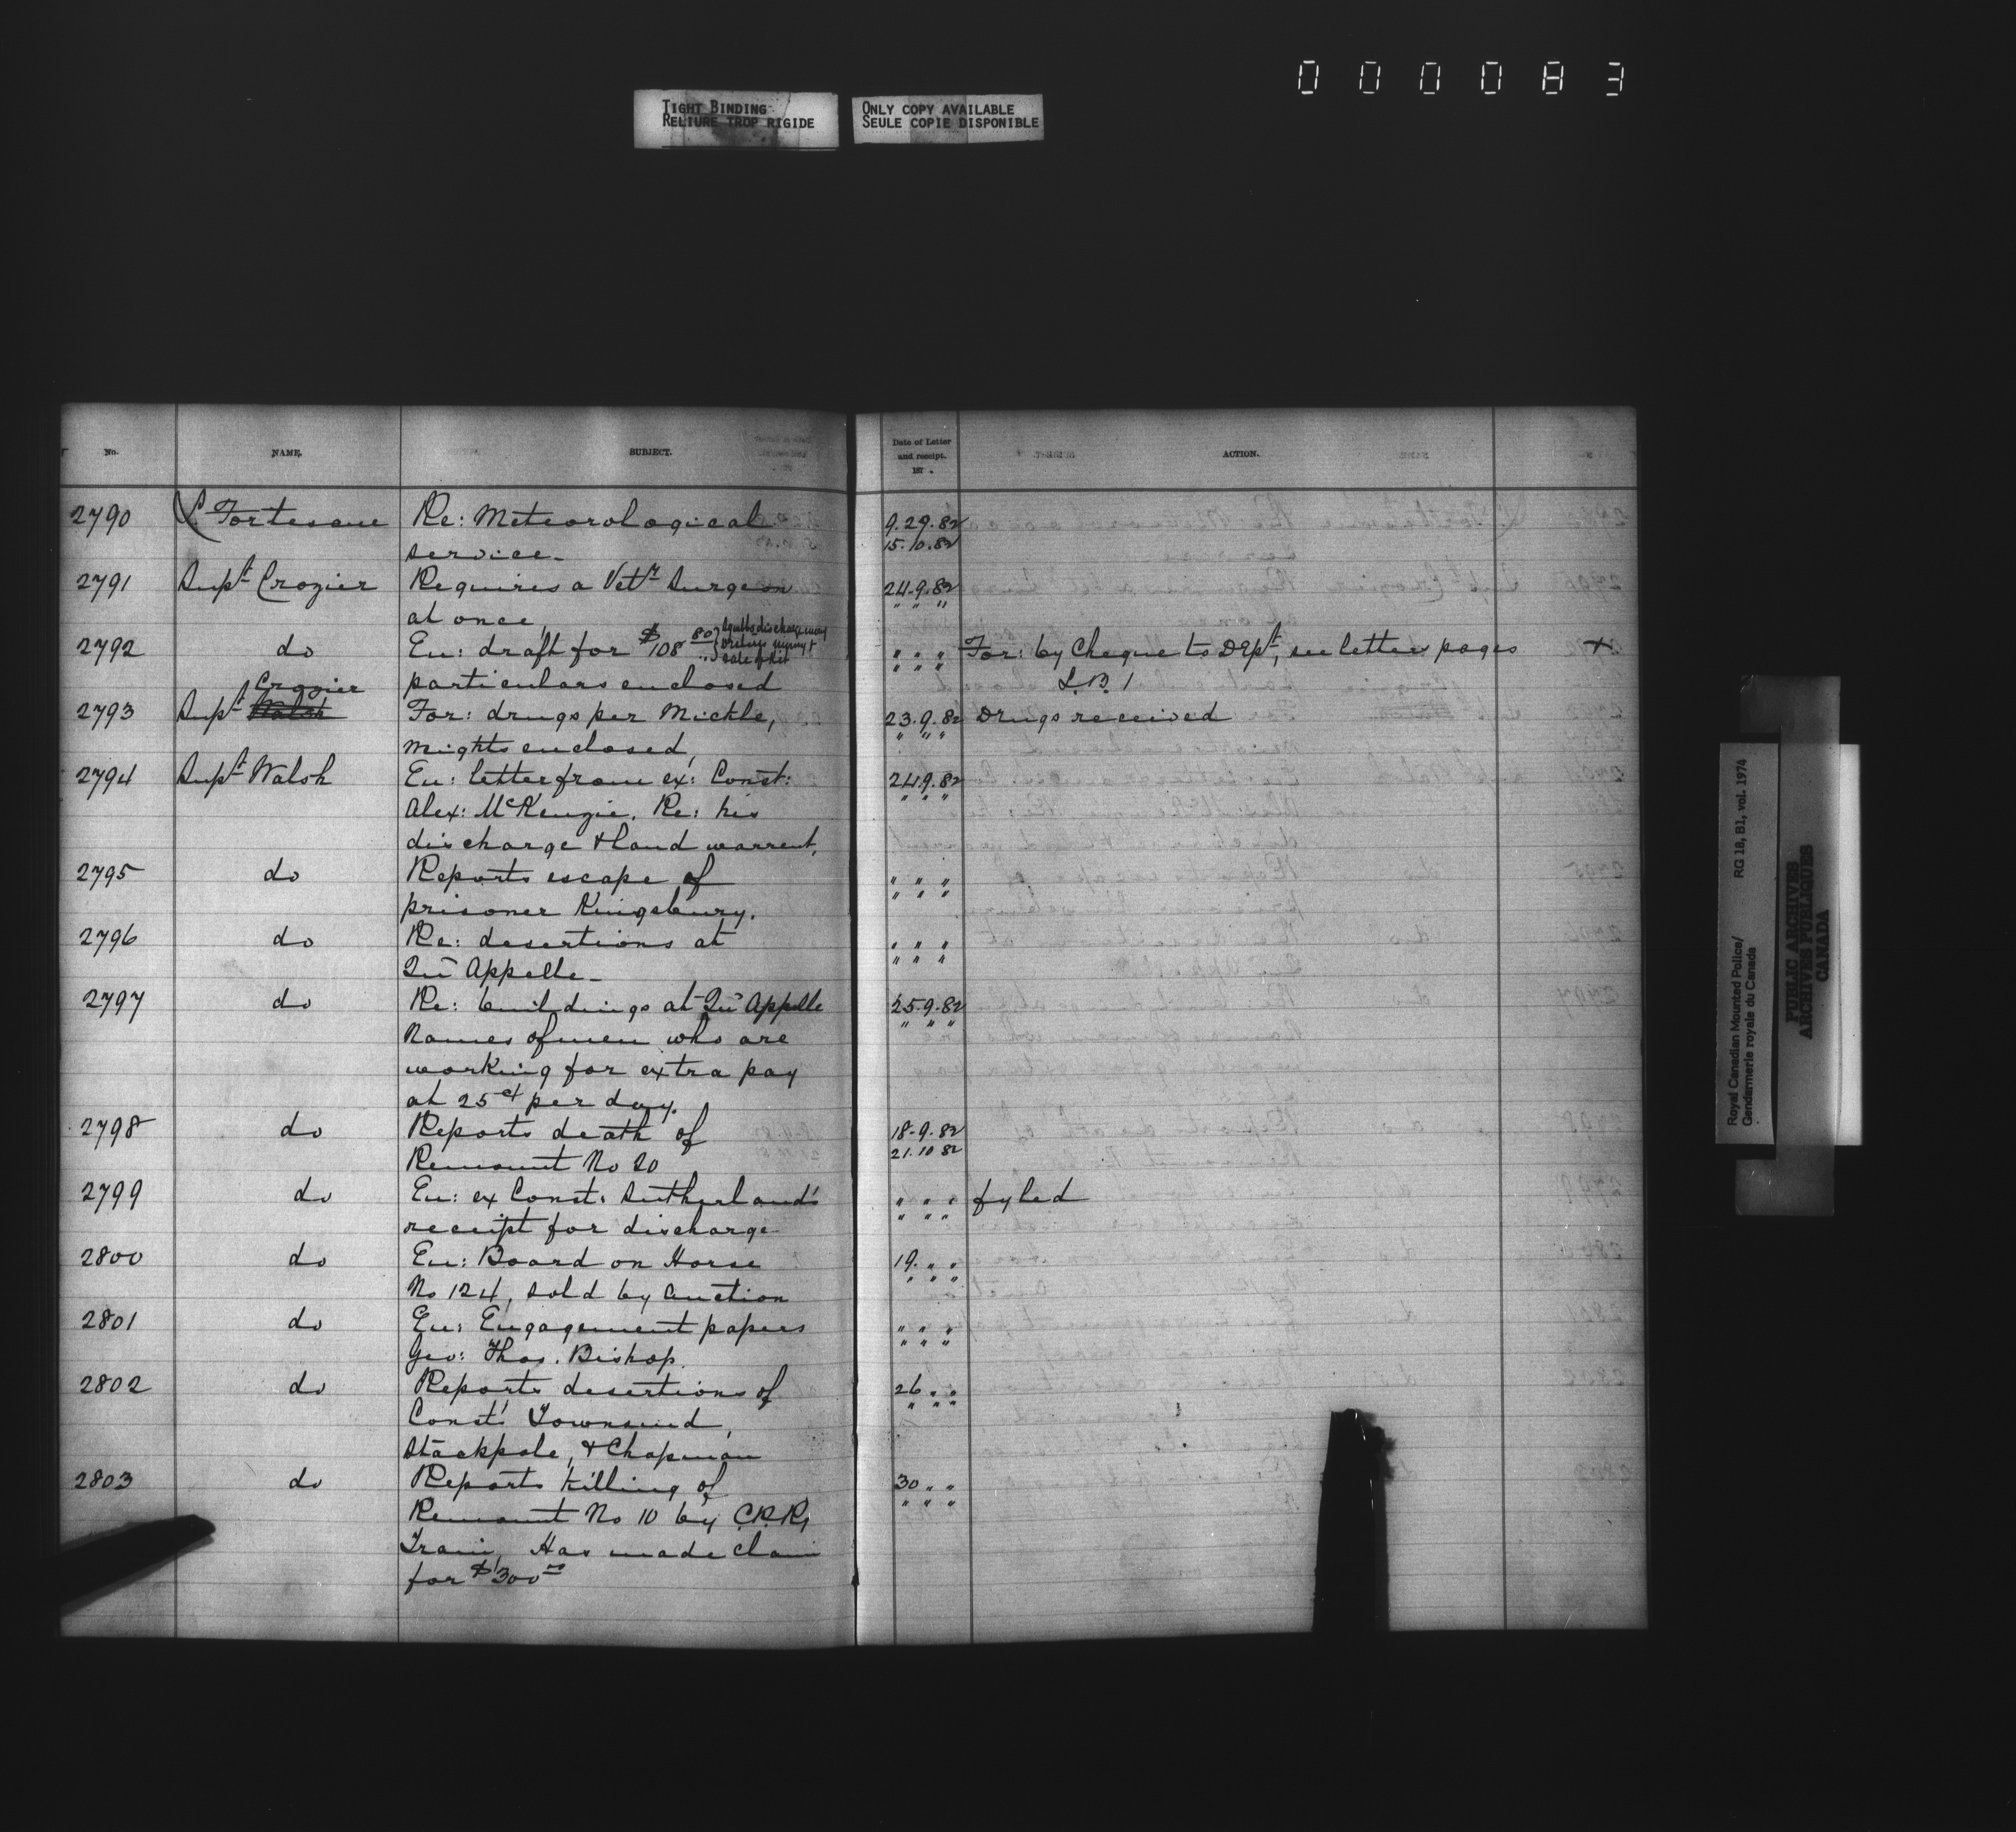 000083
TIGHT BINDING
RELIURE TROP RIGIDE
ONLY COPY AVAILABLE
SEULE COPIE DISPONIBLE
No. NAME. SUBJECT. Date of Letter and receipt. 187 . ACTION.
2790 L. Fortescue Re: Meteorological 9.29.82
service_ 15.10.82
2791 Supt Crozier Requires a Vety Surgeon 24.9.82
at once, " " "
2792 do En: draft for $108 80 " " " For: by Cheque to Dept, see letters pages x
particulars enclosed " " " L.B. 1
Crozier
2793 Supt Walsh For: drugs per Mickle, 23.9.82 Drugs received
enclosed, " " "
2794 Supt Walsh En: letter from ex: Const: 24.9.82
Alex: McKenzie. Re: his " " "
discharge & land warrent,
2795 do Reports escape of " " "
prisoner Kingsbury. " " "
2796 do Re: desertions at " " "
Qu'Appelle_ " " "
2797 do Re: buildings at Qu'Appelle 25.9.82
Names of men who are " " "
working for extra pay
at 25ct per day.
2798 do Reports death of 18.9.82
Remount No 20 21.10 82
2799 do En: ex Const: Sutherland's " " " fyled
receipt for discharge " " "
2800 do En: Board on Horse 19. " "
No 124, sold by auction " " "
2801 do En: Engagement papers " " "
Geo: Thos. Bishop. " " "
2802 do Reports desertions of 26 " "
Const's Townsend, " " "
Stackpole, & Chapman
2803 do Reports killing of 30 " "
Remount No 10 by C.P.R. " " "
Train, Has made claim
for $300
Royal Canadian Mounted Police/ RG 18, B1, vol. 1974
Gendarmerie royale du Canada
PUBLIC ARCHIVES
ARCHIVES PUBLIQUES
CANADA